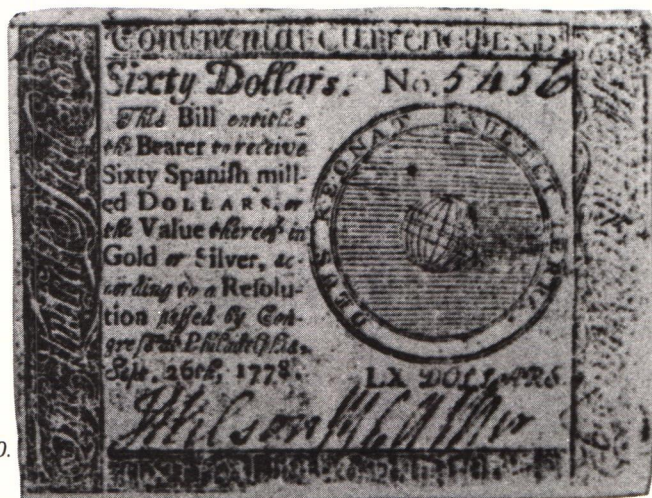 Continental Currency
Sixty Dollars. No. 5456
This Bill entitles
the Bearer to receive
Sixty Spanish mill-
ed DOLLARS, or
the Value thereof in
Gold or Silver, ac-
cording to a Resolu-
tion passed by Con-
gress at Philadelphia,
Sept. 26th, 1778.
DEUS REGNAT EXULTET TERRA
LX DOLLARS
0.